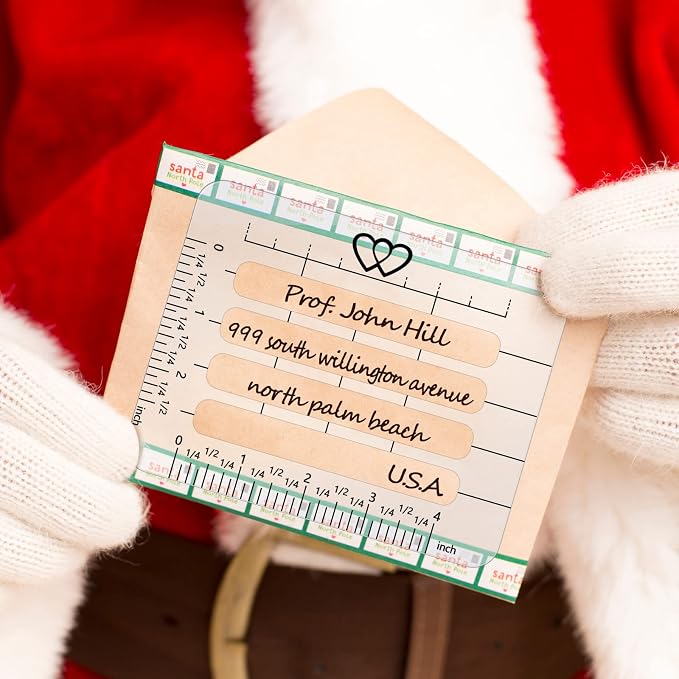 santa
North Pole
santa
North Pole
santa
North Pole
santa
North Pole
santa
North Pole
santa
North Pole
santa
North Pole
Prof. John Hill
999 south willington avenue
north palm beach
U.S.A
0 1/4 1/2 1 1/4 1/2 2 1/4 1/2 inch
0 1/4 1/2 1/4 1 1/4 1/2 1/4 2 1/4 1/2 1/4 3 1/4 1/2 1/4 4 inch
santa
North Pole
North Pole
North Pole
North Pole
santa
North Pole
santa